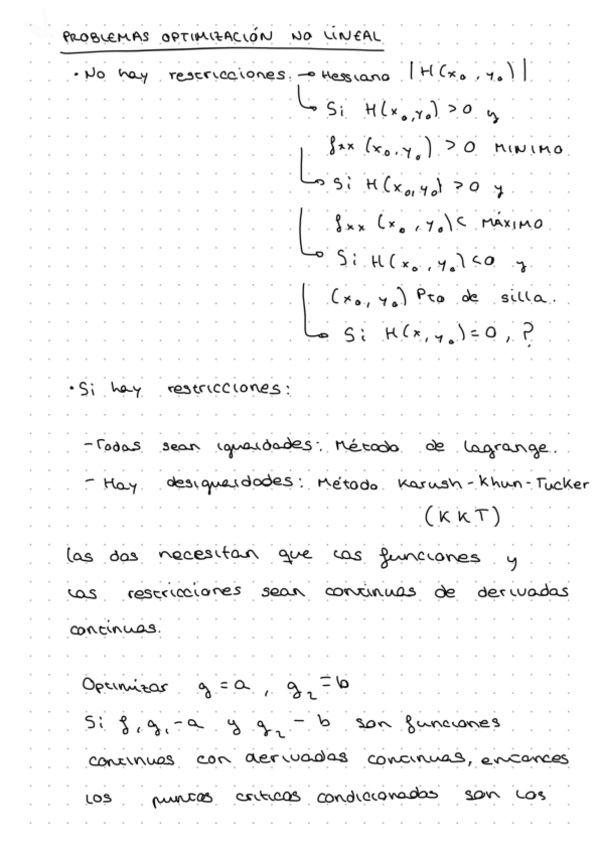 PROBLEMAS OPTIMIZACIÓN NO LINEAL
· No hay restricciones. → Hessiano |H(x₀, y₀)|
↳ Si H(x₀, y₀) > 0 y
fxx (x₀, y₀) > 0 MINIMO
↳ Si H(x₀, y₀) > 0 y
fxx (x₀, y₀) < MÁXIMO
↳ Si H(x₀, y₀) < 0 y
(x₀, y₀) Pto de silla.
↳ Si H(x, y₀) = 0, ?
· Si hay restricciones:
- Todas sean igualdades: Método de Lagrange.
- Hay desigualdades: Método Karush-Khun-Tucker
(KKT)
Las dos necesitan que las funciones y
las restricciones sean continuas de derivadas
continuas.
Optimizar g = a, g₂ = b
Si f, g₁ - a y g₂ - b son funciones
continuas con derivadas continuas, entonces
los puntos criticos condicionados son los